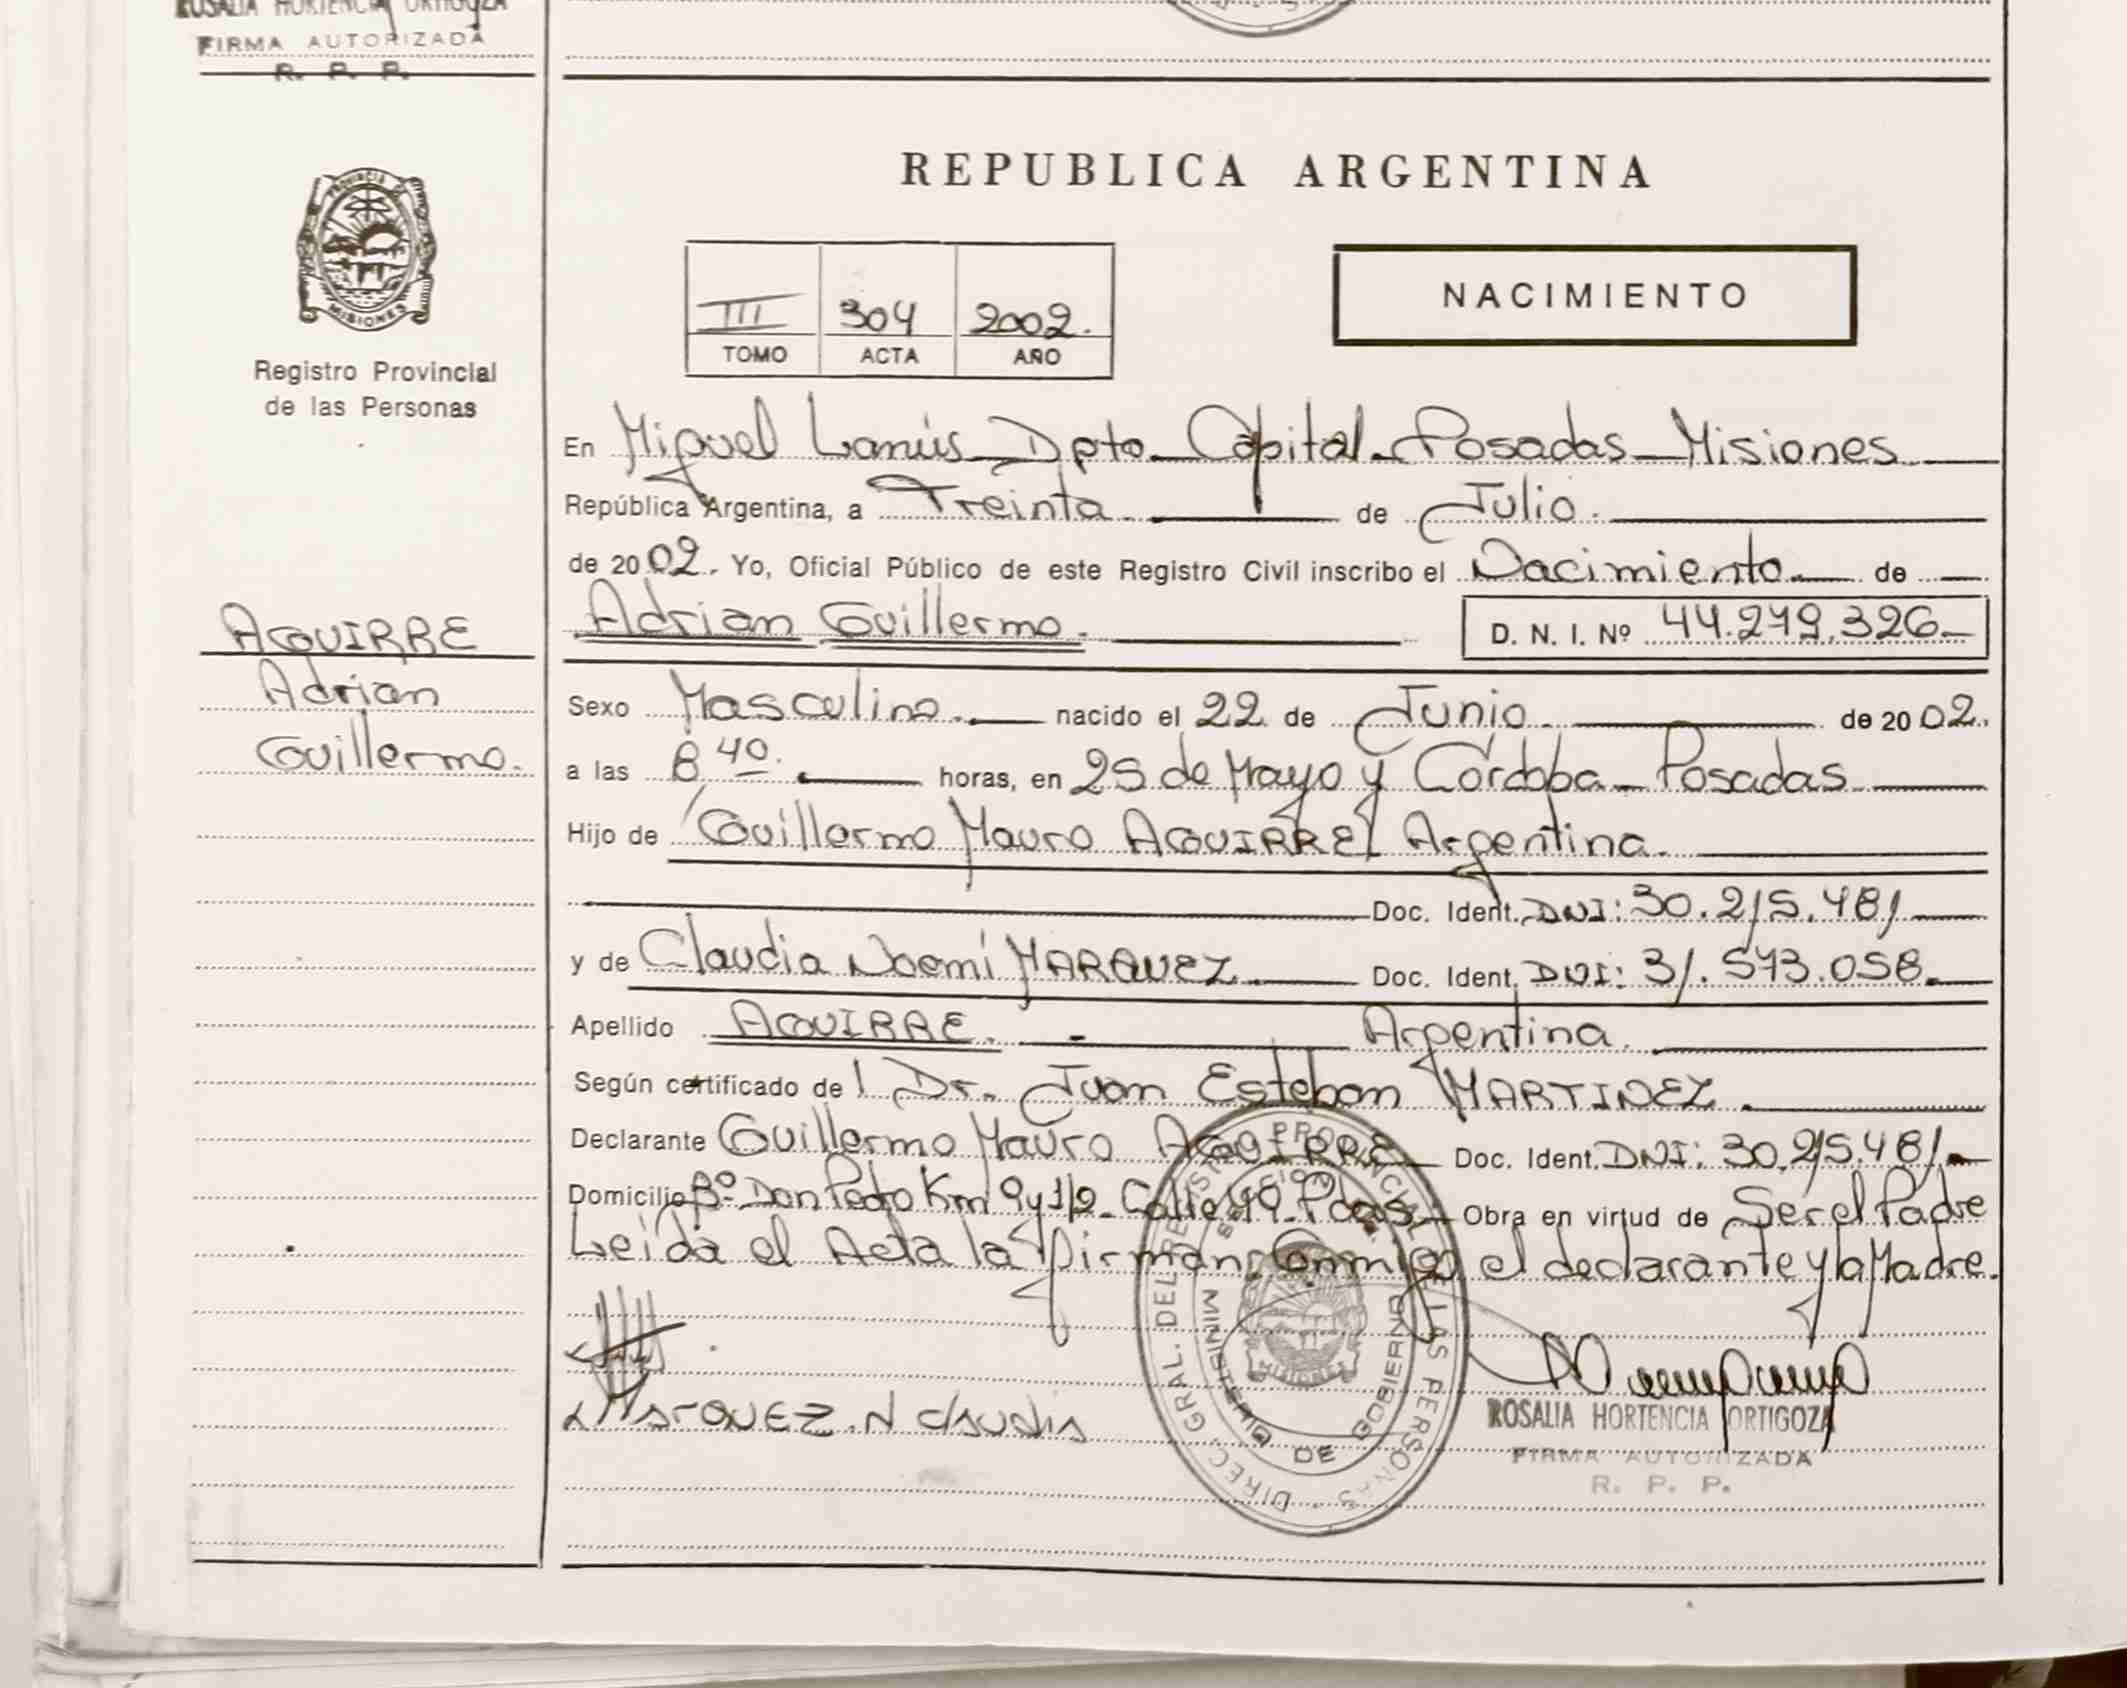 ROSALIA HORTENCIA ORTIGOZA
FIRMA AUTORIZADA
R. P. P.
PROVINCIA DE
MISIONES
Registro Provincial
de las Personas
AGUIRRE
Adrian
Guillermo.
REPUBLICA ARGENTINA
III 304 2002.
TOMO ACTA AÑO
NACIMIENTO
En Miguel Lanús Dpto Capital Posadas Misiones
República Argentina, a Treinta de Julio.
de 2002. Yo, Oficial Público de este Registro Civil inscribo el Nacimiento de
Adrian Guillermo. D. N. I. Nº 44.279.326
Sexo Masculino. nacido el 22 de Junio de 2002.
a las 8 40. horas, en 25 de Mayo y Córdoba Posadas
Hijo de Guillermo Mauro AGUIRRE/ Argentina.
Doc. Ident. DNI: 30.215.481
y de Claudia Noemí MARQUEZ Doc. Ident. DNI: 31.573.058.
Apellido AGUIRRE. - Argentina.
Según certificado de l Dr. Juan Esteban MARTINEZ.
Declarante Guillermo Mauro AGUIRRE Doc. Ident. DNI: 30.215.481
Domicilio Bº Don Pedro Km 9 y 1/2 Calle 49 Pdas. Obra en virtud de Ser el Padre
Leída el Acta la firman Conmigo el declarante y la Madre.
MARQUEZ. N Claudia
DIREC. GRAL. DEL REGISTRO PROVINCIAL DE LAS PERSONAS
MINISTERIO DE GOBIERNO
MISIONES
ROSALIA HORTENCIA ORTIGOZA
FIRMA AUTORIZADA
R. P. P.